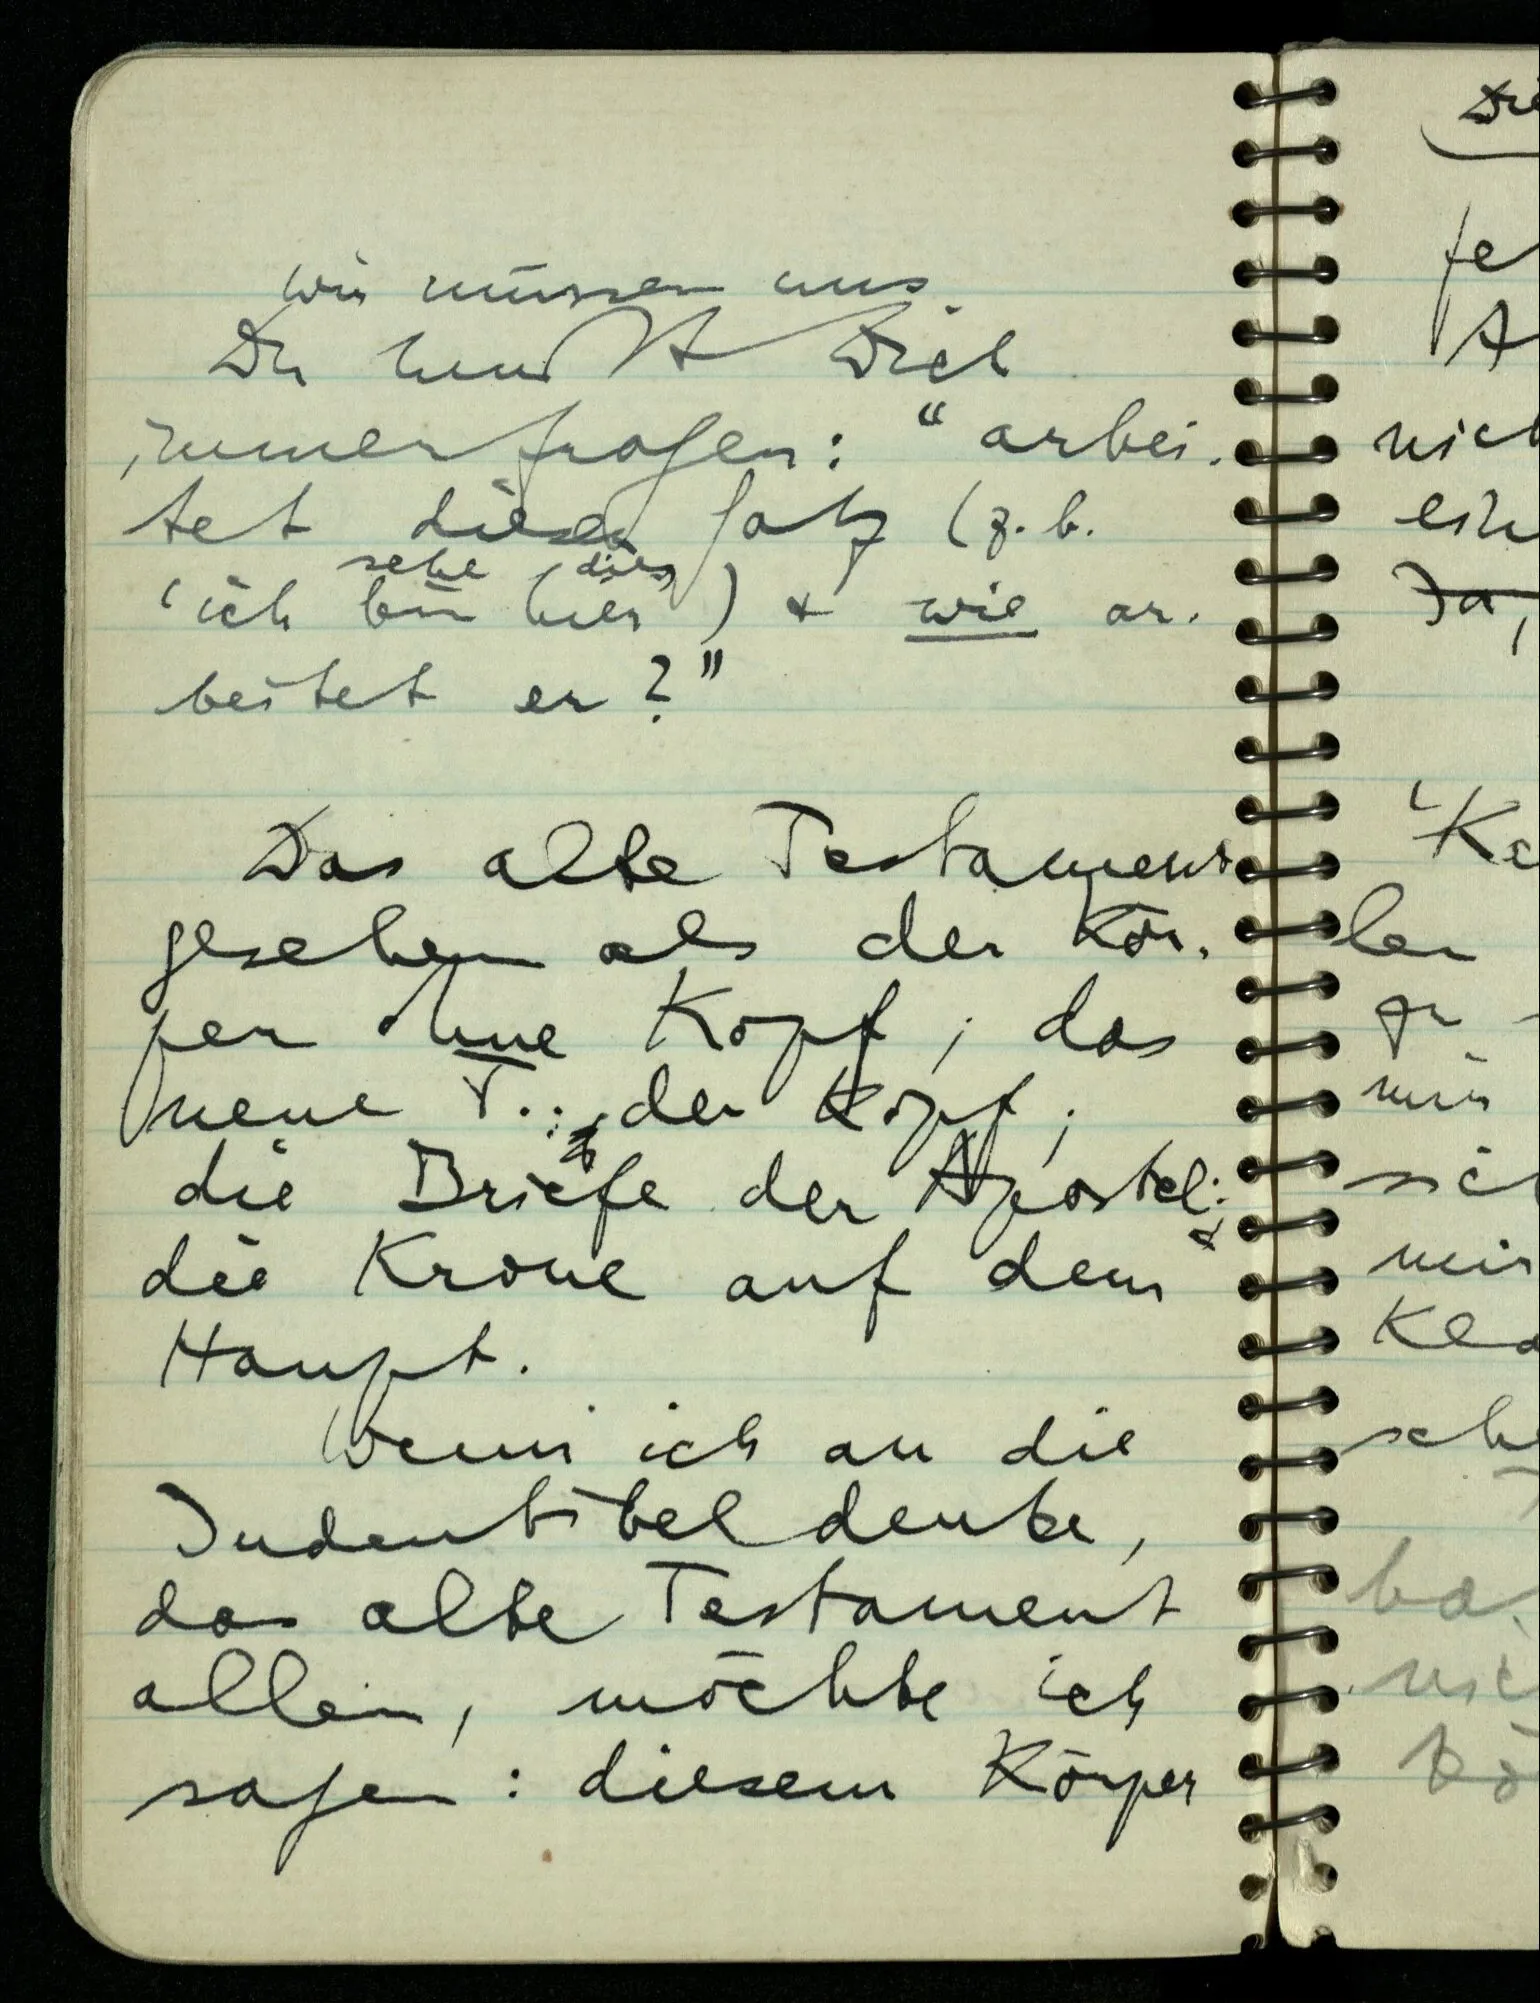 wir müssen uns
Du mußt Dich
immer fragen: "arbei-
tet dieser Satz (z.b.
sehe dies
'ich bin hier') & wie ar-
beitet er?"
Das alte Testament
gesehen als der Kör-
per ohne Kopf; das
neue T.: der Kopf;
die Briefe der Apostel:
die Krone auf dem
Haupt.
Wenn ich an die
Judenbibel denke,
das alte Testament
allein, möchte ich
sagen: diesem Körper